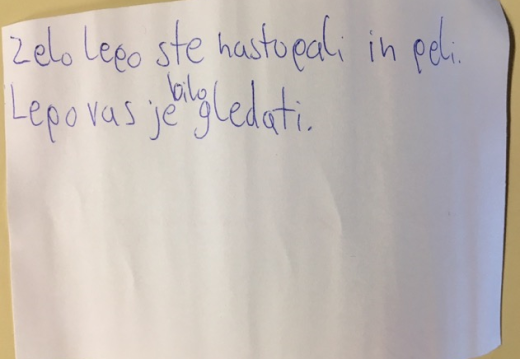 Zelo lepo ste nastopali in peli.
Lepo vas je bilo gledati.